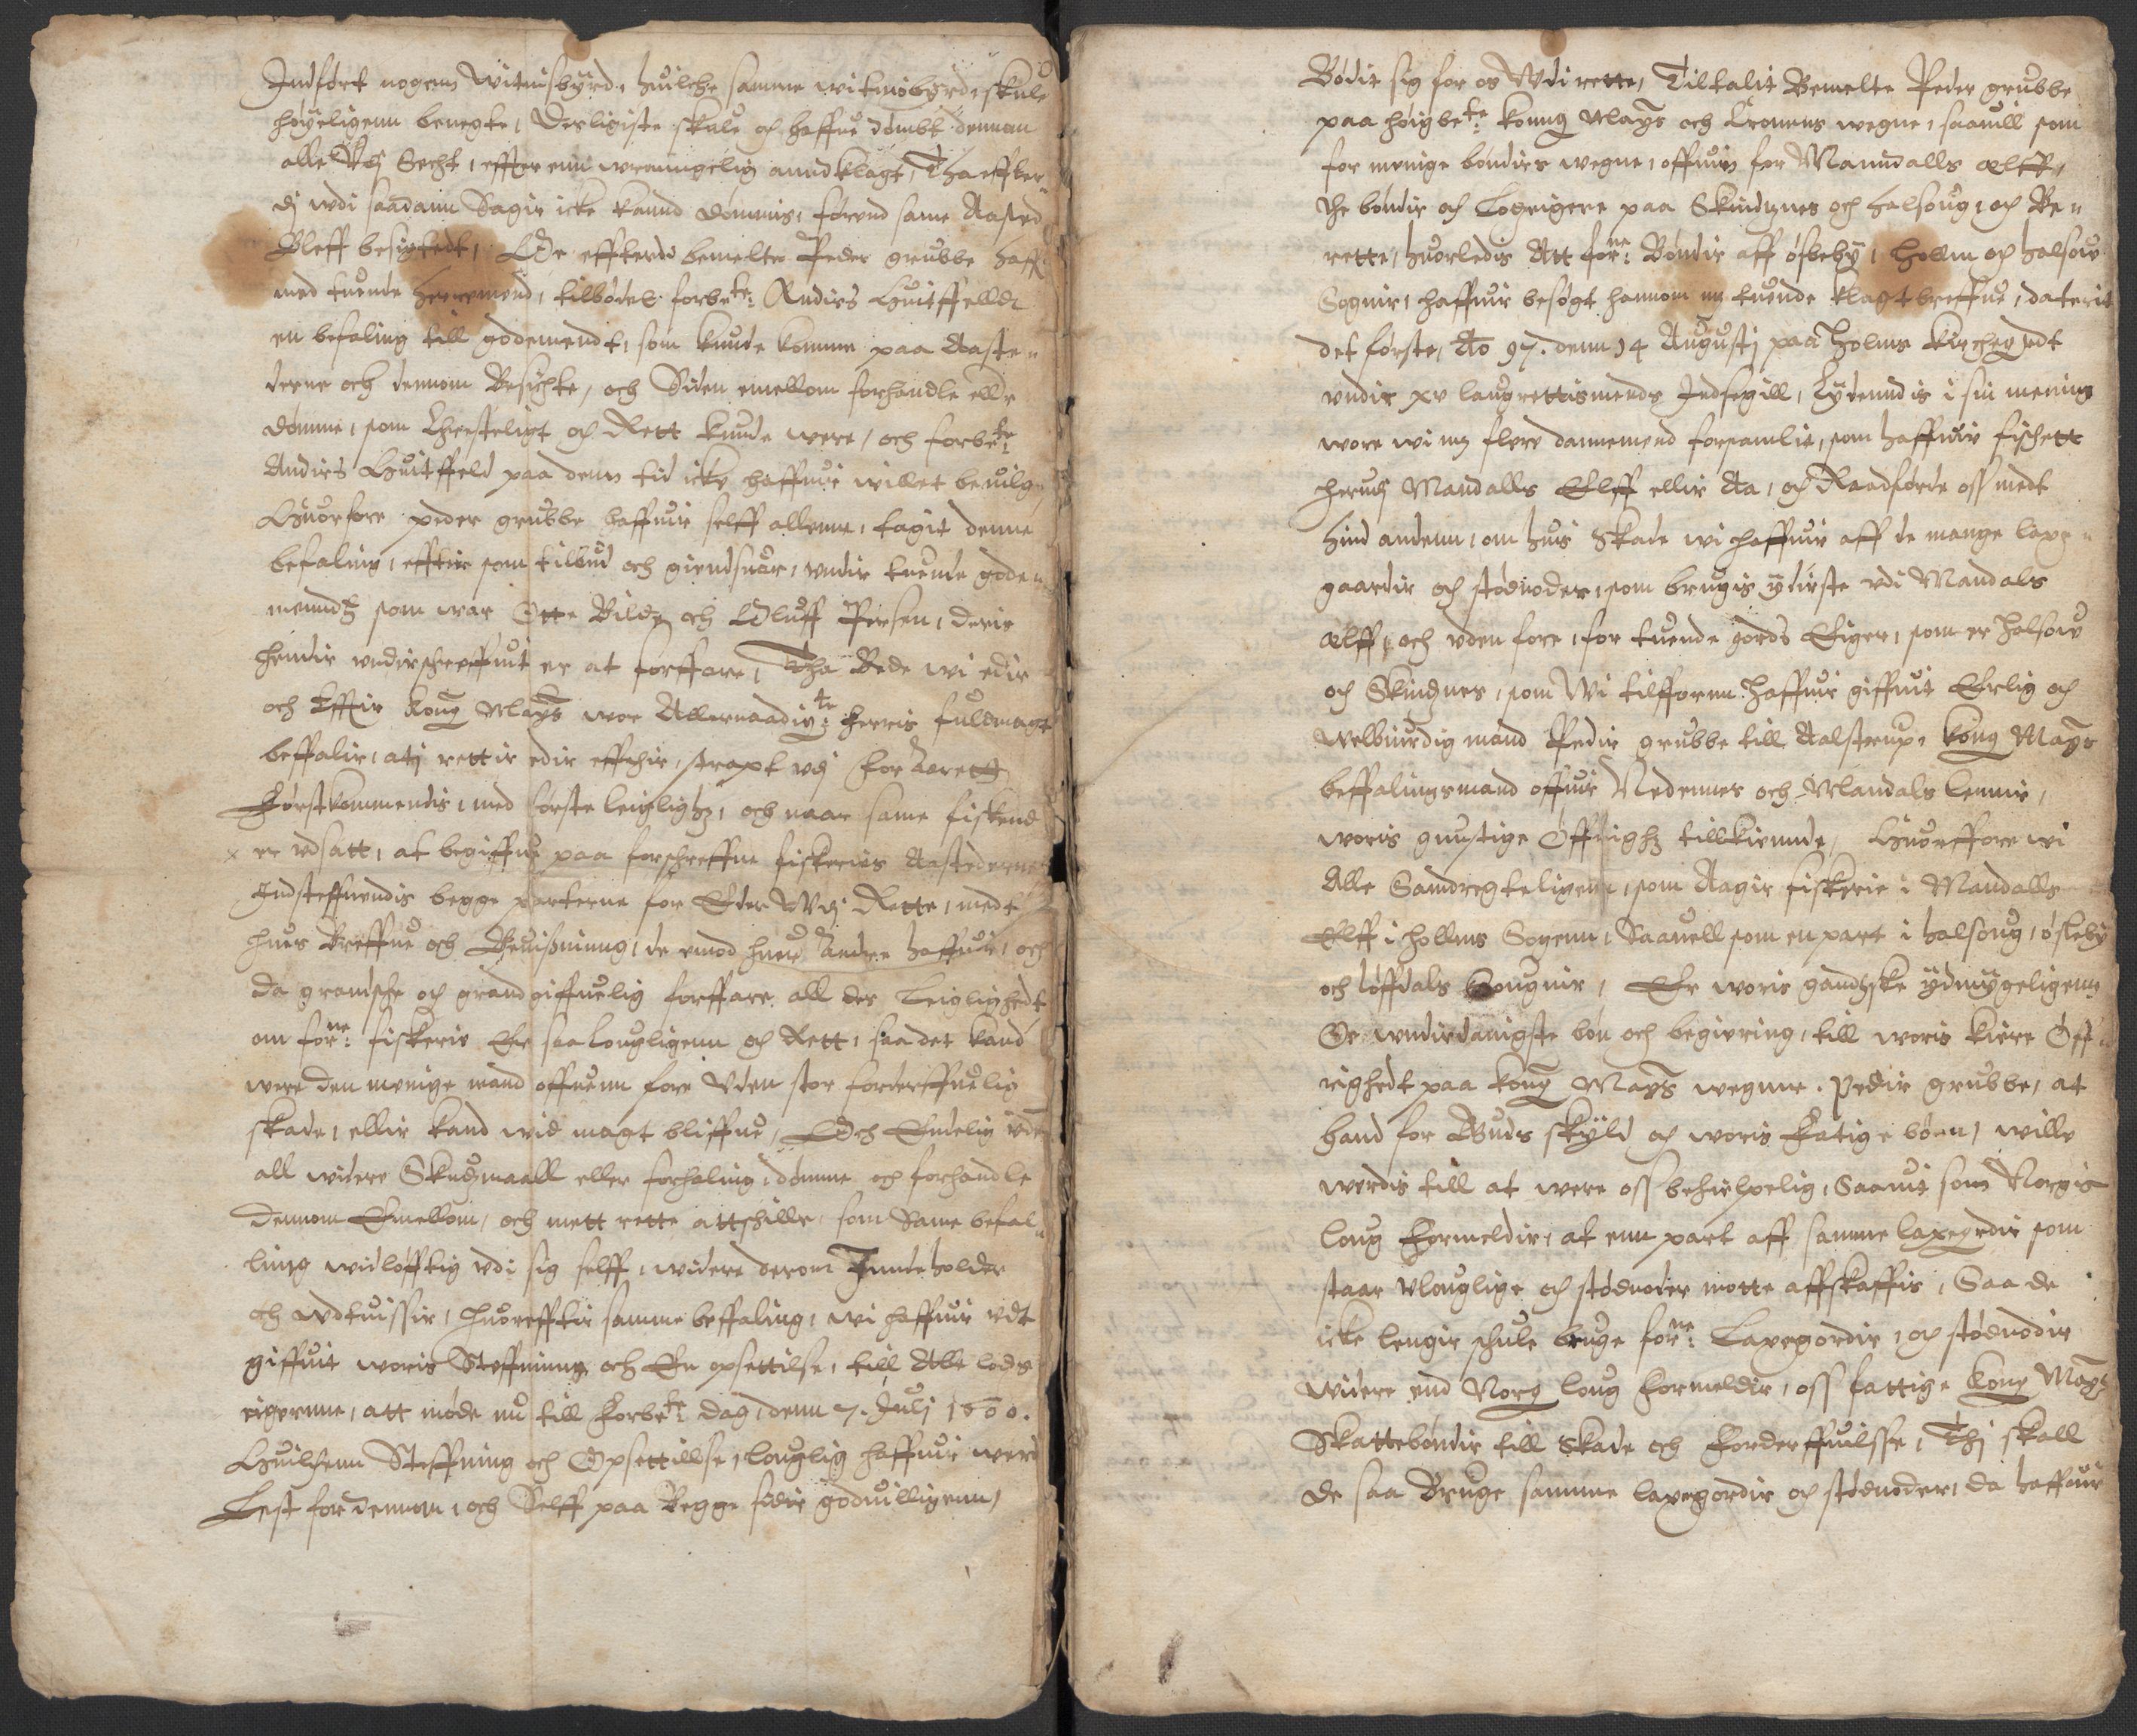 Indført nogenn Witnisbyrd, huilche samme witnisbyrd skule
høyeligenn benegte, Desligiste skule och haffue dømbt dennom
alle Vdj Secht, effter enn wrangelig anndklage, Tha effter
dj wdi saadann Sager icke kannd dømmis, førend same Aasted
Bleff besigtedt, Och effterdi bemelte Peder grubbe haff
med tuende herremend, tilbødet forbete: Anders Huitffelldt
en befaling till godemendt, som kunde komme paa Aaste
derne och dennom Besichte, och Siden emellom forhandle eller
dømme, som Christeligt och Rett kunde were, och forbete:
Anders Huitffeld paa denn tid icke haffuer willet beuilge
Huorfore peder grubbe haffuer selff allenne, tagit denne
befaling, effter som tilbud och giendsuar, vnder tuende gode
menndtz som war Otte Bilde och Oluff Persen, deris
hender vnderschreffuit er at forffare, Tha Bede wi eder
och Effter Kong Mayts wor Allernaadigte: Herris fuldmagt
beffaler, atj retter eder effther, straxt vdj for Aarett
Førstkommendis, med første leiglighz, och naar same fiskend
er vdsatt, at begiffue paa forschreffne fiskeries Aastederne
Indsteffnendis begge parterne for Eder Vdj Rette, medt
hues Breffue och Beuissninng, de emod huer Andre haffuer, och
da grandsche och grandgiffuelig forffare all des Leiglighedt
om forne: fiskerie Er saa louglligenn och Rett, saa det kand
were den menige mand offuenn fore Vden stor forderffuelig
skade, eller kand wid magt bliffue, Och Endelig vden
all widere Skudzmaall eller forhaling, dømme och forhandle
Dennom Emellom, och mett rette attschille, som Same befal
ling widløfftig vdi sig selff, widere derom Inndeholder
och vdtuisser, huoreffter samme beffaling, wi haffuer vdt
giffuit woris Steffninng och En opsettilse, till Alle lods
eigernne, att møde nu till forbete: dag, denn 7. Julj 1600.
Huilchenn Steffning och Opsettillse, louglig haffuer werd
Lest for dennom, och Selff paa Begge sider goduilligenn,
Bødit sig for os Vdi rette, Tiltalit Bemelte Peder grubbe
paa høigbete: konng Mayts och Cronens wegne, saauill som
for menige bønders wegne, offuen for Manndalls elff,
the bønder och Lodeigere paa Skindznes och halsoug, och Be
rette, huorledis Att forne: Bønder aff øfseby, Hollm och halsow
Sogner, haffuer besøgt hannom mz tuende klagebreffue, daterit
det første, Ao 97. denn 14 Augustj paa Holms kirchegredt
vnder xv laugrettismends Indsegill, Lydenndis i sin mening
wore wi mz flere dannemend forsamlit, som haffuer fischett
herudj Mandalls Elff eller Aa, och Raadførde oss medt
hind andenn, om huis Skade wi haffuer aff de mange laxe
gaarder och stødnoder, som brugis yderste vdi Mandals
elff, och vden fore, for tuende gords Eiger, som er Halsow
och Skindznes, som Wi tilfforenn haffuer giffuit Erlig och
welbiurdig mand Peder grubbe till Aalstrup, kong Mayts
beffalingsmand offuer Nedennes och Mandals lenner,
woris gunstige Øffrighz tillkiennde, Huorffore wi
Alle Samdregteligenn, som Aager fiskerie i Mandalls
Elff i Hollms Sogenn, Saauell som en part i Halsoug, øsleby
och løffdals Sougner, Er woris gandzske ydmygeligenn
Oc wnderdanigste bøn och begiering, till woris kiere Øff
righedt paa kong Mayts wegnne. Peder grubbe, at
hand for Guds skyld och woris Fatige bøen, wille
werdis till at were oss behielpelig, Saauit som Norgis
loug Formelder, at enn part aff samme laxegrder som
staar vlouglige och stødnoder motte affskaffis, Saa de
icke lenger schule bruge forne: Laxegorder, och stødnoder
widere end Norg loug formelder, oss fattige kong Mayts
Skattebønder till Skade och Forderffuilsse, Thj skall
de saa Bruge samme laxegorder och stødnoder, da haffuer